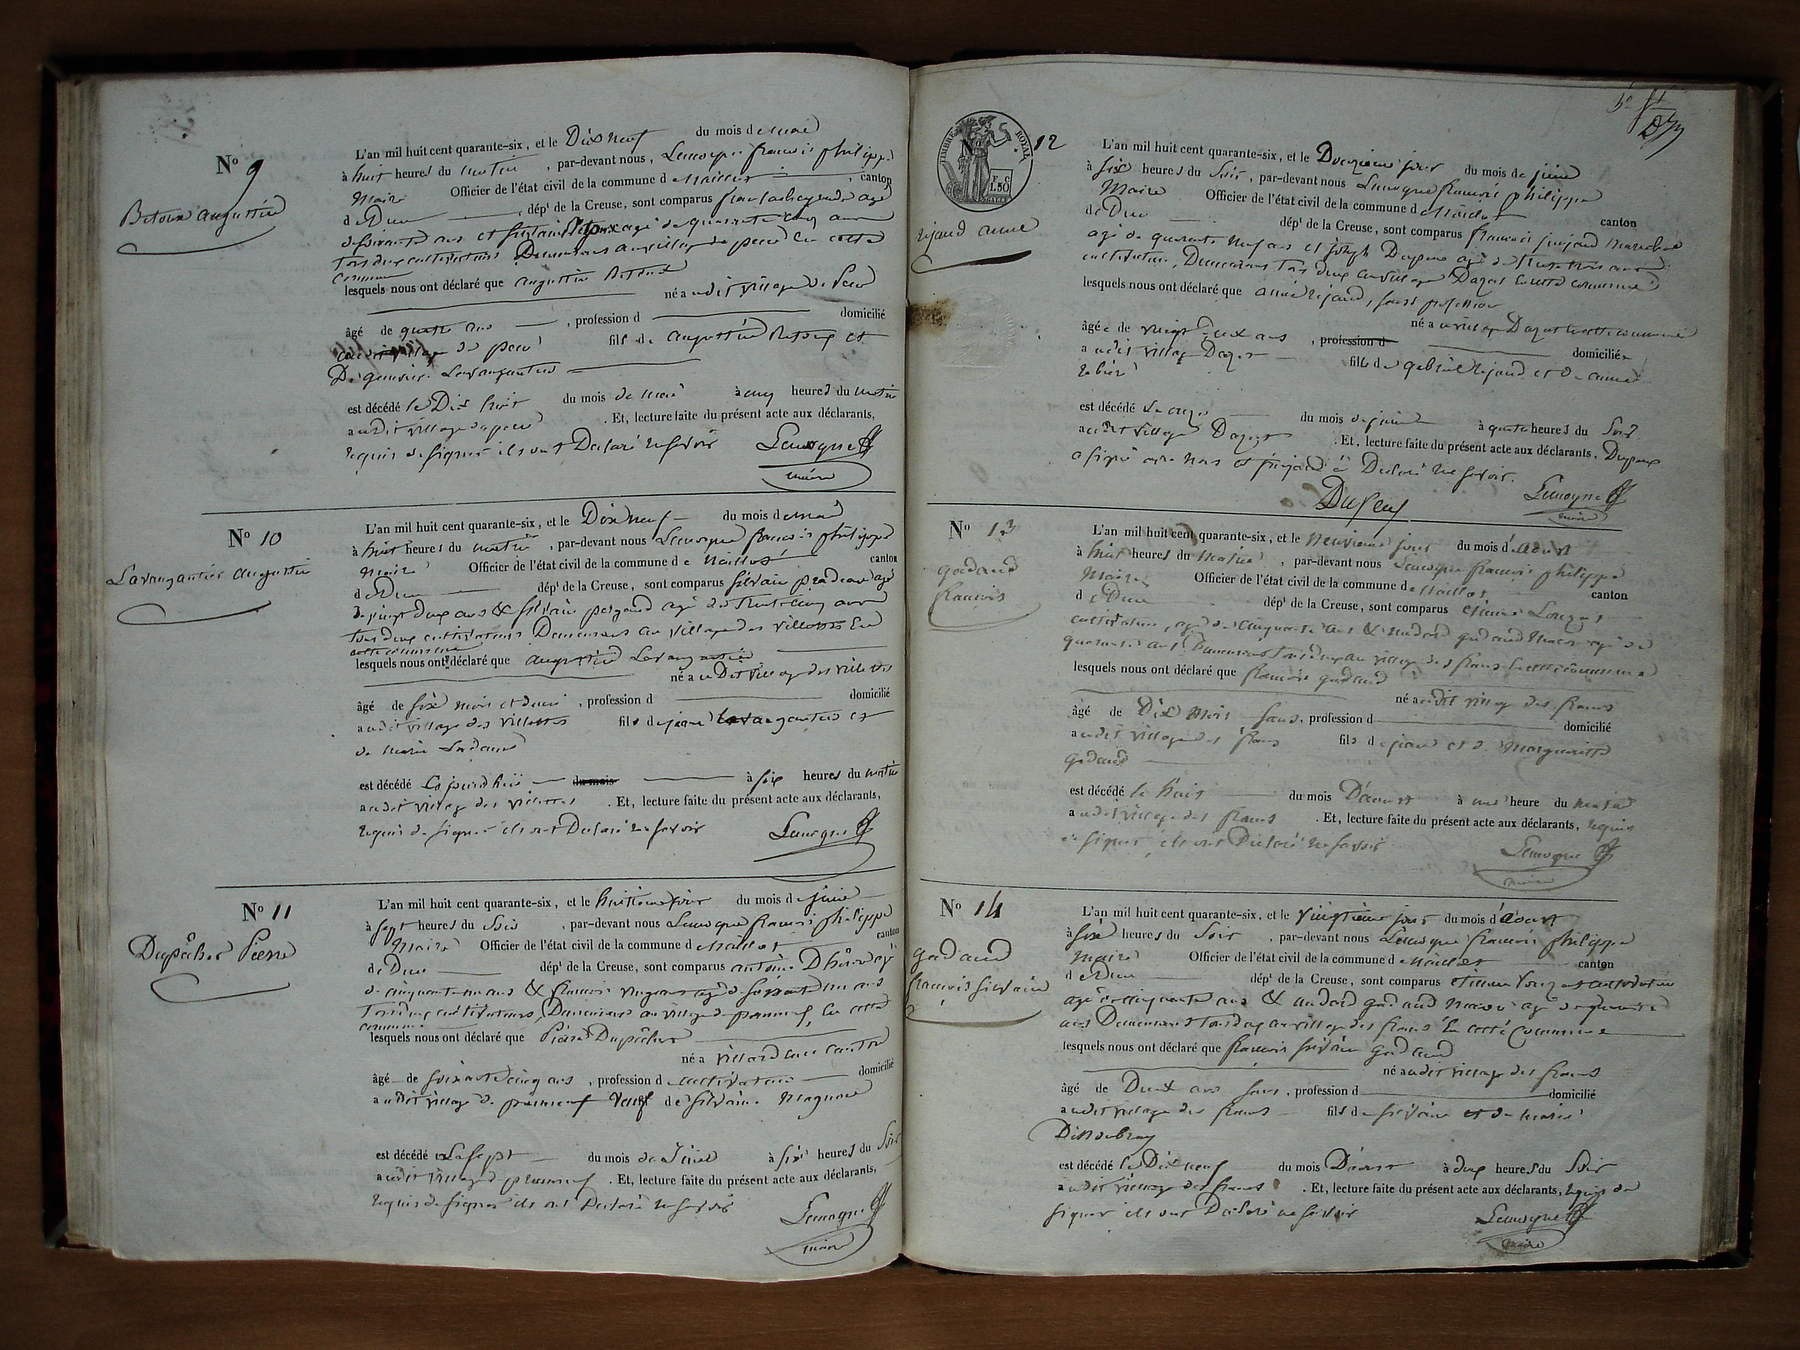 N° 9
Betoux augustin
L'an mil huit cent quarante-six, et le Dix neuf du mois de mai
à huit heures du matin, par-devant nous, Lemoyne françois philippe
Maire Officier de l'état civil de la commune de Maillot, canton
de Dun, dépt de la Creuse, sont comparus agé
de soixante ans et silvain agé de quarante cinq ans
tous deux cultivateurs Demeurans au village de peou En cette
commune
lesquels nous ont déclaré que augustin Betoux
né audit village de Peou
âgé de quatre ans, profession d domicilié
audit village de peou fils de augustin Betoux et
De
est décédé le Dix huit du mois de mai à cinq heures du matin
audit village de peou. Et, lecture faite du présent acte aux déclarants,
requis de signer ils ont Déclaré ne savoir Lemoyne
maire
N° 10
Lavaugautier augustin
L'an mil huit cent quarante-six, et le Dix neuf du mois de mai
à huit heures du matin, par-devant nous Lemoyne françois philippe
Maire Officier de l'état civil de la commune de Maillot canton
de Dun dépt de la Creuse, sont comparus silvain pradeau agé
de vingt deux ans & silvain agé de trente cinq ans
tous deux cultivateurs Demeurans au village des villettes En
cette commune
lesquels nous ont déclaré que augustin Lavaugautier
né audit village des villettes
âgé de six mois et demi, profession d domicilié
audit village des villettes fils de jean Lavaugautier et
de marie
est décédé Cejourdhui du mois à six heures du matin
audit village des villettes. Et, lecture faite du présent acte aux déclarants,
requis de signer ils ont Déclaré ne savoir Lemoyne
N° 11
Dupêcher Pierre
L'an mil huit cent quarante-six, et le huitieme jour du mois de juin
à sept heures du soir, par-devant nous Lemoyne françois philippe
Maire Officier de l'état civil de la commune de Maillot canton
de Dun dépt de la Creuse, sont comparus antoine
de cinquante un ans & françois agé de soixante un ans
tous deux cultivateurs, Demeurans au village de En cette
commune
lesquels nous ont déclaré que Pierre Dupêcher
né a villard canton
âgé de soixante cinq ans, profession de cultivateur domicilié
audit village de veuf de silvaine Magnoux
est décédé Le sept du mois de Juin à six heures du soir
audit village de. Et, lecture faite du présent acte aux déclarants,
requis de signer ils ont Déclaré ne savoir
Lemoyne
maire
TIMBRE ROYAL
F 1.50
N° 12
anne
L'an mil huit cent quarante-six, et le Douzieme jour du mois de juin
à six heures du soir, par-devant nous Lemoyne françois philippe
Maire Officier de l'état civil de la commune de Maillot canton
de Dun dépt de la Creuse, sont comparus françois
agé de quarante neuf ans et joseph agé de trente trois ans
cultivateur, Demeurans tous deux au village Dazat En cette commune
lesquels nous ont déclaré que anne, sans profession
né au village Dazat En cette commune
âgée de vingt deux ans, profession d domiciliée
audit village Dazat fille de gabriel et de anne
est décédé Le onze du mois de juin à quatre heures du soir
audit village Dazat. Et, lecture faite du présent acte aux déclarants,
a signé avec nous et a Declaré ne savoir.
Lemoyne
maire
N° 13
godaud
françois
L'an mil huit cent quarante-six, et le neuvieme jour du mois d'aout
à huit heures du matin, par-devant nous Lemoyne françois philippe
Maire Officier de l'état civil de la commune de Maillot canton
de Dun dépt de la Creuse, sont comparus etienne
cultivateur, agé de cinquante ans & godaud macon agé de
quarante ans Demeurans tous deux au village des frans En cette commune
lesquels nous ont déclaré que françois godaud
né audit village des frans
âgé de Dix mois sans, profession d domicilié
audit village des frans fils de jean et de Marguerite
godaud
est décédé le huit du mois D'aout à une heure du matin
audit village des frans. Et, lecture faite du présent acte aux déclarants, requis
de signer, ils ont Déclaré ne savoir
Lemoyne
maire
N° 14
godaud
françois silvain
L'an mil huit cent quarante-six, et le vingtieme jour du mois d'aout
à six heures du soir, par-devant nous Lemoyne françois philippe
Maire Officier de l'état civil de la commune de Maillot canton
de Dun dépt de la Creuse, sont comparus etienne cultivateur
agé de cinquante ans & godaud macon agé de quarante
ans Demeurans tous deux au village des frans En cette commune
lesquels nous ont déclaré que françois silvain godaud
né audit village des frans
âgé de Deux ans sans, profession d domicilié
audit village des frans fils de silvain et de marie
est décédé le Dix neuf du mois D'aout à deux heures du soir
audit village des frans. Et, lecture faite du présent acte aux déclarants, requis de
signer ils ont Déclaré ne savoir
Lemoyne
maire